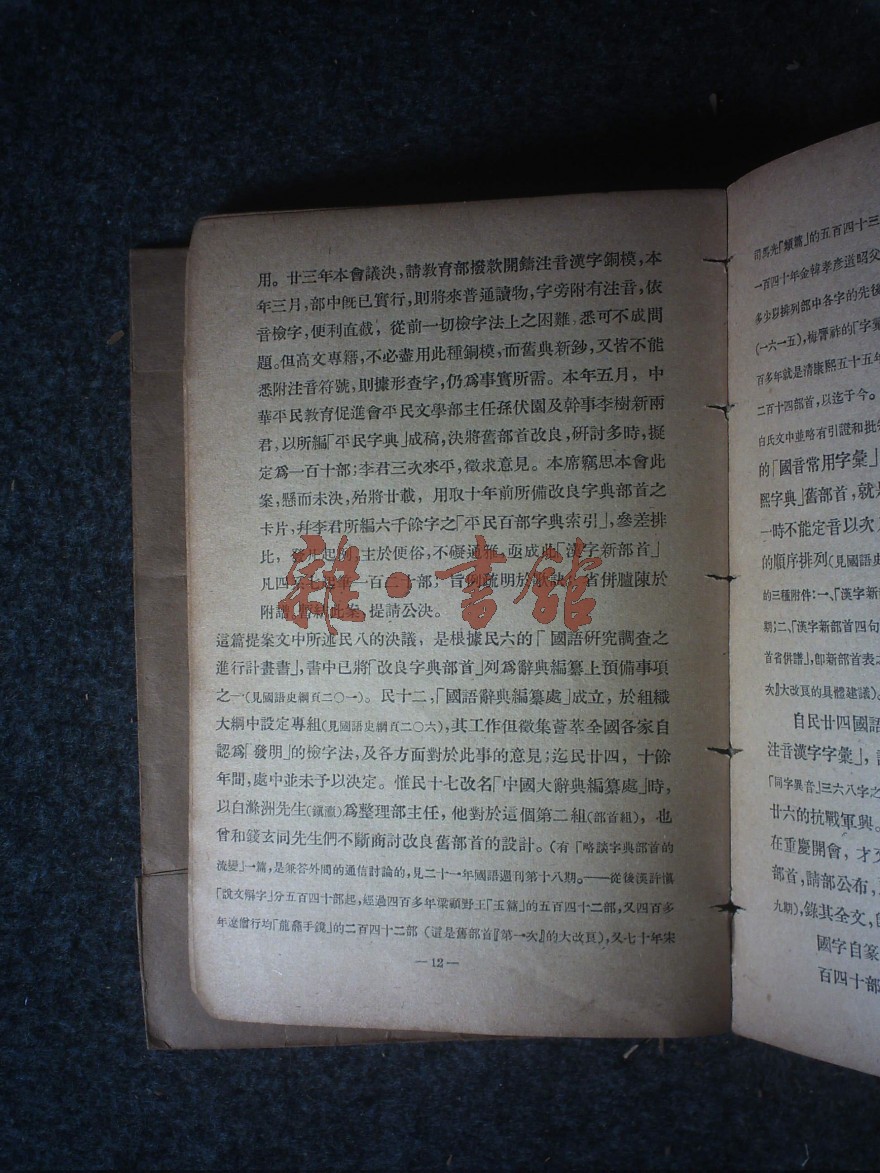 用。廿三年本會議決,請教育部撥款開鑄注音漢字銅模,本
年三月,部中旣已實行,則將來普通讀物,字旁附有注音,依
音檢字,便利直截,從前一切檢字法上之困難,悉可不成問
題。但高文專籍,不必盡用此種銅模,而舊典新鈔,又皆不能
悉附注音符號,則據形查字,仍爲事實所需。本年五月,中
華平民敎育促進會平民文學部主任孫伏園及幹事李樹新兩
君,以所編「平民字典」成稿,決將舊部首改良,硏討多時,擬
定爲一百十部;李君三次來平,徵求意見。本席竊思本會此
案,懸而未決,殆將廿載,用取十年前所備改良字典部首之
卡片,幷李君所編六千餘字之「平民百部字典索引」,參差排
比,發凡起例,主於便俗,不礙通雅,亟成此「漢字新部首」
凡四系七起筆一百二十部;旨例疏明於歌訣,省併臚陳於
附譜,暫執此案,提請公決。
這篇提案文中所述民八的決議,是根據民六的「國語硏究調查之
進行計畫書」,書中已將「改良字典部首」列爲辭典編纂上預備事項
之一(見國語史綱頁二〇一)。民十二,「國語辭典編纂處」成立,於組織
大綱中設定專組(見國語史綱頁二〇六),其工作但徵集薈萃全國各家自
認爲「發明」的檢字法,及各方面對於此事的意見;迄民廿四,十餘
年間,處中並未予以決定。惟民十七改名「中國大辭典編纂處」時,
以白滌洲先生(鎭瀛)爲整理部主任,他對於這個第二組(部首組),也
曾和錢玄同先生們不斷商討改良舊部首的設計。(有「略談字典部首的
流變」一篇,是兼答外間的通信討論的,見二十一年國語週刊第十八期。——從後漢許愼
「說文解字」分五百四十部起,經過四百多年梁顧野王「玉篇」的五百四十二部,又四百多
年遼僧行均「龍龕手鏡」的二百四十二部(這是舊部首『第一次』的大改頁),又七十年宋
—12—
司馬光「類篇」的五百四十三
一百四十年金韓孝彥道昭父
多少以排列部中各字的先後
(一六一五),梅膺祚的「字彙
百多年就是清康熙五十五年
二百十四部首,以迄于今。
白氏文中並略有引證和批
的「國音常用字彙」
熙字典」舊部首,就是
一時不能定音以次
的順序排列(見國語史
的三種附件:一、「漢字新
期;二、「漢字新部首四句
首省併譜」,卽新部首表之
次』大改頁的具體建議)。
自民廿四國語
注音漢字字彙」,
「同字異音」三六八字之
廿六的抗戰軍興。
在重慶開會,才
部首,請部公布,
九期),錄其全文,
國字自篆
百四十部
雜·書館